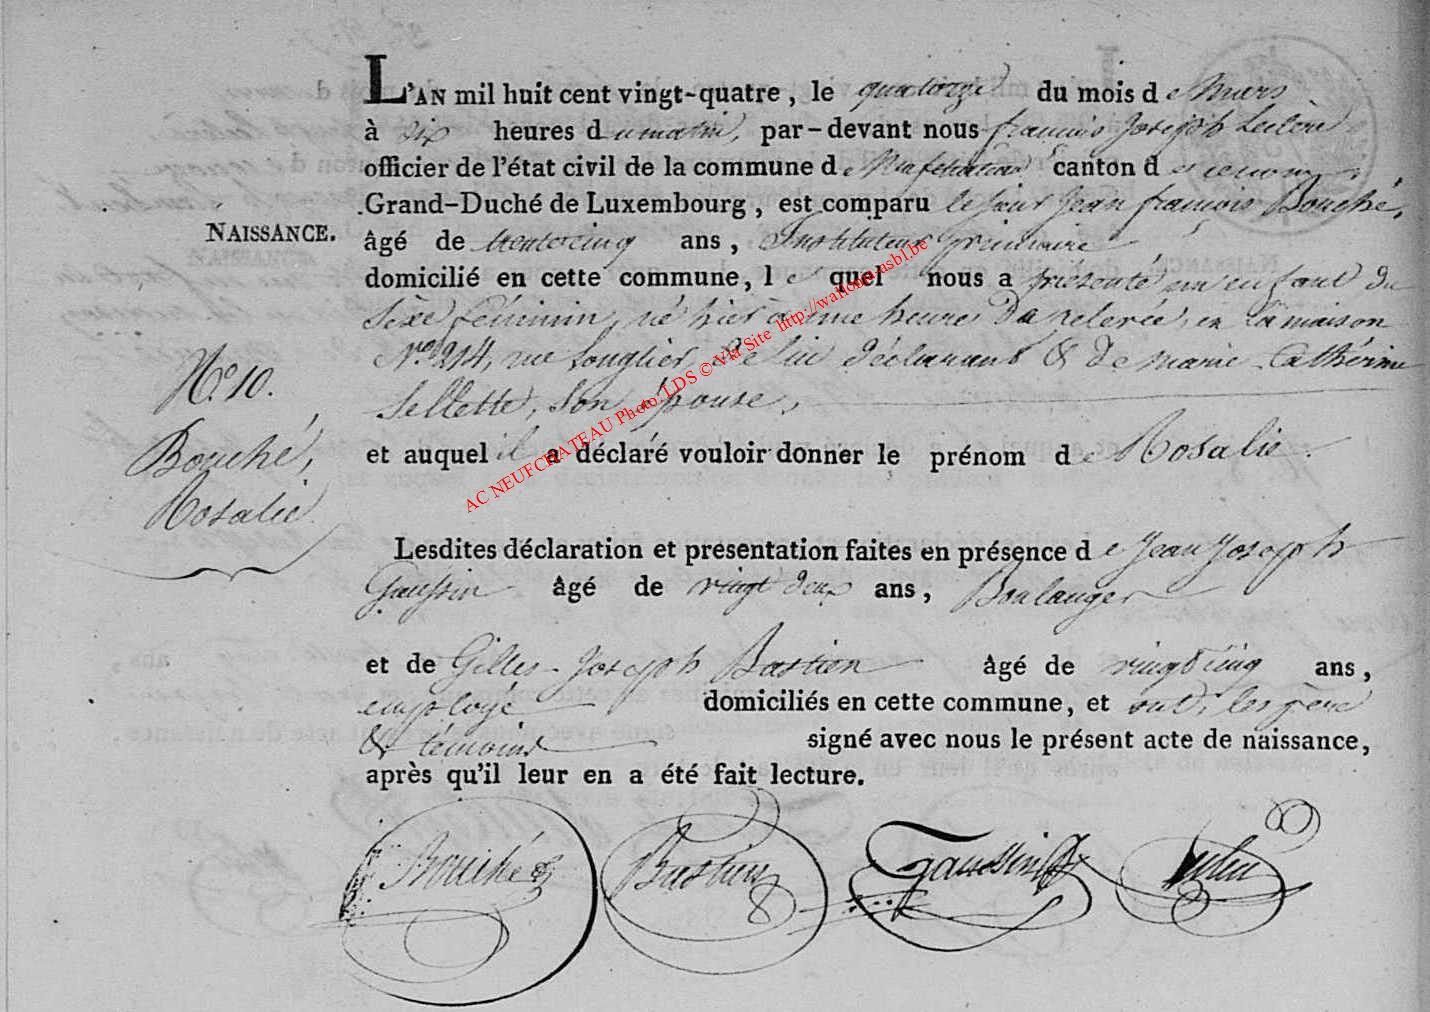 L'AN mil huit cent vingt-quatre, le quatorze du mois de Mars
à dix heures du matin, par-devant nous françois Joseph
officier de l'état civil de la commune de Neufchateau canton de ce nom,
Grand-Duché de Luxembourg, est comparu le sieur Jean françois Bouché,
NAISSANCE.
âgé de trente cinq ans, Instituteur primaire
domicilié en cette commune, lequel nous a présenté un enfant du
Sèxe féminin, né hier à une heure de relevée, en sa maison
Nro 214, rue Longlier, de lui déclarant & de marie Cathérine
Sellette, son épouse,
et auquel il a déclaré vouloir donner le prénom de Rosalie.
No. 10.
Bouché,
Rosalie
Lesdites déclaration et presentation faites en présence de Jean Joseph
Gaussin âgé de vingt deux ans, Boulanger
et de Gilles Joseph Bastien âgé de vingt cinq ans,
employé domiciliés en cette commune, et ont, les père
& témoins signé avec nous le présent acte de naissance,
après qu'il leur en a été fait lecture.
Bouché Bastien Gaussin
AC NEUFCHATEAU Photo: LDS © Via Site http://wallonia.asbl.be